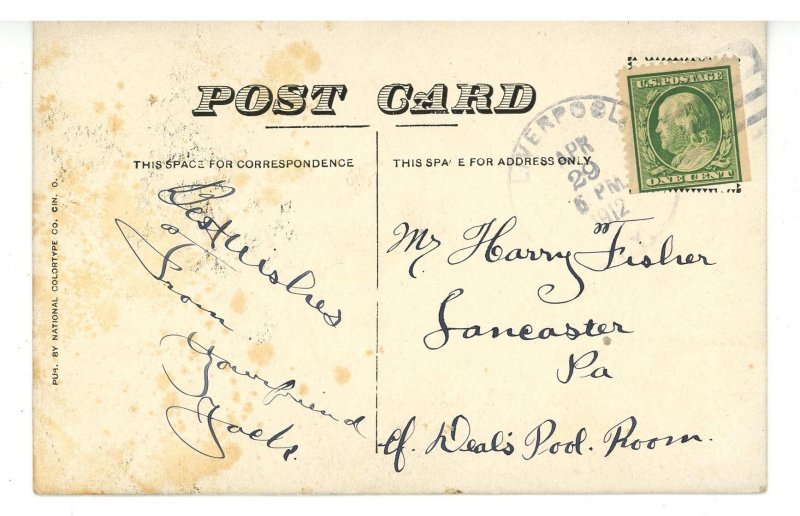 POST CARD
THIS SPACE FOR CORRESPONDENCE
THIS SPA E FOR ADDRESS ONLY
PUB. BY NATIONAL COLORTYPE CO. CIN. O.
Best Wishes
From
Your friend
LIVERPOOL
APR
29
6 PM
1912
U.S. POSTAGE
ONE CENT
Mr Harry Fisher
Lancaster
Pa
Deal's Pool. Room.